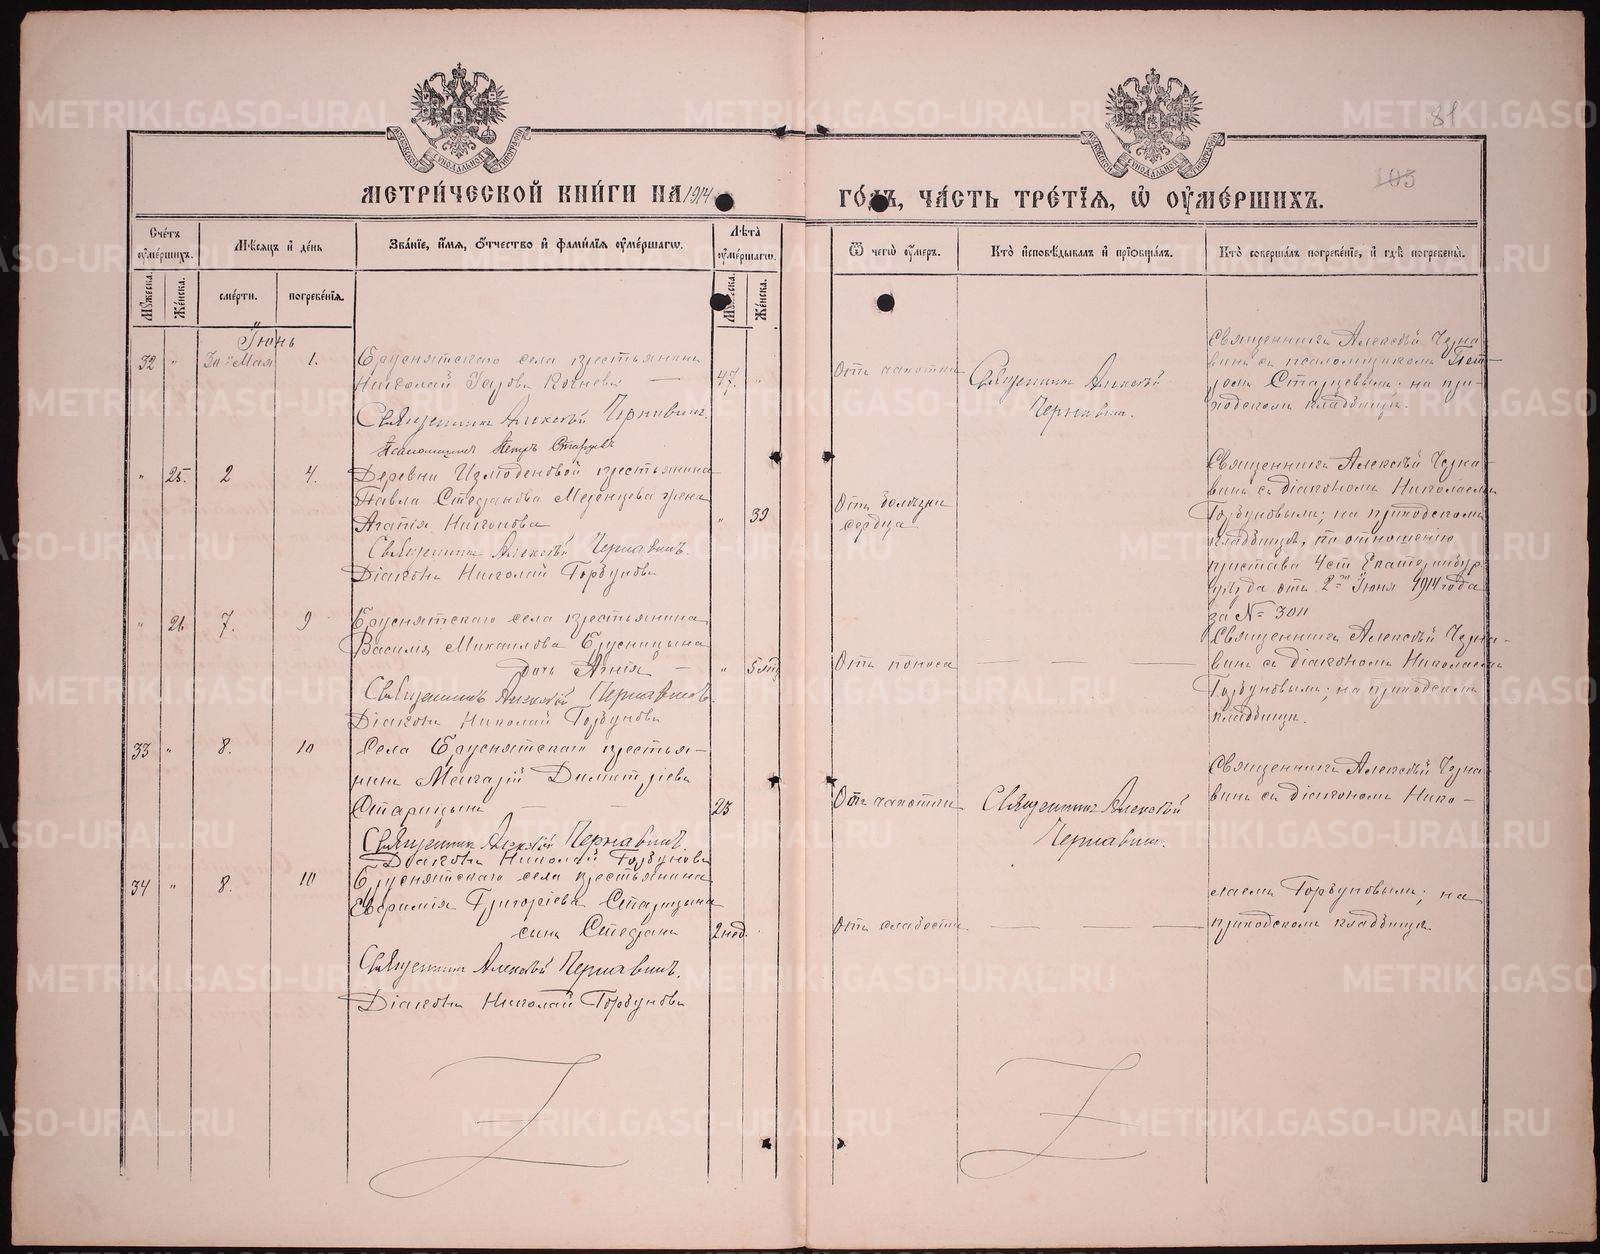 81
105
МЕТРИ́ЧЕСКОЙ КНИ́ГИ НА 1914 ГО́ДЪ, ЧА́СТЬ ТРЕ́ТІѦ, Ѡ҆ ОУ҆МЕ́РШИХЪ.
Сче́тъ оу҆ме́ршихъ.
Мѣ́сяцъ и҆ де́нь
Зва́нїе, и҆́мя, ѻ҆́тчество и҆ фами́лїя оу҆ме́ршагѡ.
Лѣ́та оу҆ме́ршагѡ
Ѿ чегѡ̀ оу҆́меръ.
Кто̀ и҆сповѣ́дывалъ и҆ прїѡбща́лъ.
Кто̀ соверша́лъ погребе́нїе, и҆ гдѣ̀ погребены̀.
Мꙋ́жеска.
Же́нска.
сме́рти.
погребе́нїя.
Мꙋ́жеска.
Же́нска.
Іюнь
32 " Мая 1. Бруснятскаго села крестьянинъ
Николай Кочневъ — 47. "
Священникъ Алексѣй Чернавинъ.
Псаломщикъ Петръ Старцевъ
Отъ чахотки
Священникъ Алексѣй
Чернавинъ.
Священникъ Алексѣй Черна-
винъ съ псаломщикомъ Пет-
ромъ Старцевымъ; на при-
ходскомъ кладбищѣ.
" 25. 2 4. Деревни Измоденовой крестьянина
Павла Стефанова Мезенцева жена
Агапія Никонова " 39
Священникъ Алексѣй Чернавинъ.
Діаконъ Николай Горбуновъ
Отъ болѣзни
сердца
Священникъ Алексѣй Черна-
винъ съ діакономъ Николаемъ
Горбуновымъ; на приходскомъ
кладбищѣ, по отношенію
пристава 4 ст Екатеринбур.
уѣзда отъ 2го Іюня 1914 года
за № 3011
" 26 7. 9 Бруснятскаго села крестьянина
Василія Михаилова Брусницына
дочь Агнія — " 5 мѣс
Священникъ Алексѣй Чернавинъ.
Діаконъ Николай Горбуновъ
Отъ поноса — — —
Священникъ Алексѣй Черна-
винъ съ діакономъ Николаемъ
Горбуновымъ; на приходскомъ
кладбищѣ.
33 " 8. 10 Села Бруснятскаго крестья-
нинъ Макарій Димитріевъ
Старицынъ — — 23
Священникъ Алексѣй Чернавинъ.
Діаконъ Николай Горбуновъ
Отъ чахотки
Священникъ Алексѣй
Чернавинъ.
Священникъ Алексѣй Черна-
винъ съ діакономъ Нико-
34 " 8. 10 Бруснятскаго села крестьянина
Евфимія Григоріева Старицына
сынъ Стефанъ 2 нед.
Священникъ Алексѣй Чернавинъ.
Діаконъ Николай Горбуновъ
Отъ слабости — — —
лаемъ Горбуновымъ; на
приходскомъ кладбищѣ.